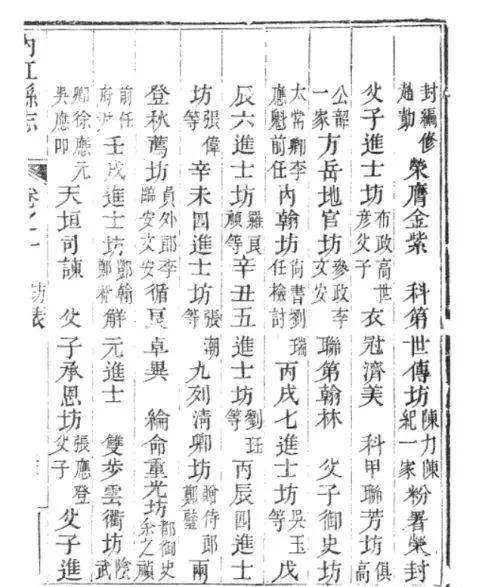 封編修趙勳榮膺金紫 科第世傳坊陳力陳紀一家粉署榮封
父子進士坊布政高世彥父子衣冠濟美 科甲聯芳坊俱高
公韶一家方岳地官坊參政李文安聯第翰林 父子御史坊
太常卿李應魁前任內翰坊尚書劉瑞任檢討丙戌七進士坊吳玉等戊
辰六進士坊羅良禎等辛丑五進士坊劉玨等丙辰四進士
坊張偉等辛未四進士坊張潮等九列清卿坊贈侍郎鄭璧兩
登秋薦坊員外郎李臨安文安循良卓異 綸命重光坊都御史余之禎
前任府尹壬戌進士坊鄧翰鄭裕解元進士 雙步雲衢坊陰武
卿徐應元吳應叩天垣司諫 父子承恩坊張應登父子父子進
內江縣志 卷之一 坊表